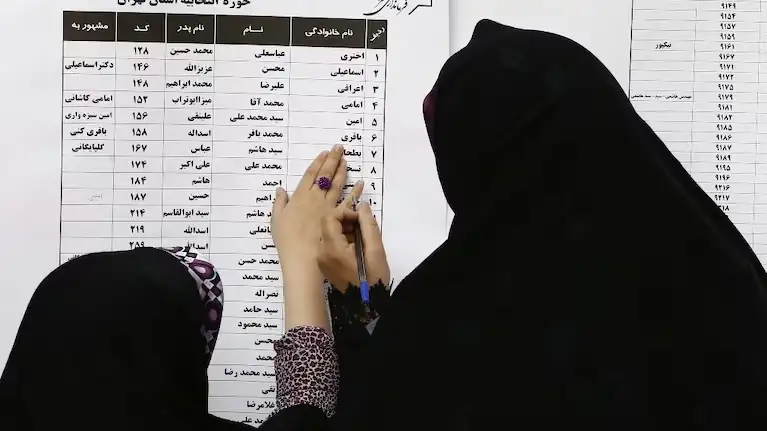 حوزه انتخابیه استان تهران
فرمانداری
نام خانوادگی نام نام پدر کد مشهور به
۱ اختری عباسعلی محمد حسین ۱۲۸
۲ اسماعیلی محسن عزیزالله ۱۴۶ دکتراسماعیلی
۳ اعرافی علیرضا محمد ابراهیم ۱۴۸
۴ امامی محمد آقا میرزاابوتراب ۱۵۲ امامی کاشانی
۵ امین سید محمد علی علینقی ۱۵۶ امین سبزه واری
۶ باقری محمد باقر اسداله ۱۵۸ باقری کنی
۷ بطحا سید هاشم عباس ۱۶۷ گلپایگانی
۸ محمد علی علی اکبر ۱۷۴
۹ احمد هاشم ۱۸۴
۱۰ حسین ۱۸۷
هاشم سید ابوالقاسم ۲۱۴
اسدالله ۲۱۹
اسدالله ۲۵۹
محمد حسن
سید محمد
نصراله
سید حامد
سید محمود
محسن
محمد
سید محمد رضا
تقی
غلامرضا
محمد علی
۹۱۴۹
۹۱۵۴
۹۱۵۷
۹۱۵۹
۹۱۶۱ نیکپور
۹۱۶۷
۹۱۷۱
۹۱۷۲
۹۱۷۵
۹۱۷۹ مهندس هاشمی-سید-سید هاشمی
۹۱۸۱
۹۱۸۲
۹۱۸۵
۹۱۸۷
۹۱۸۹
۹۱۹۵
۹۱۹۶
۹۲۱۶
۹۲۱۷